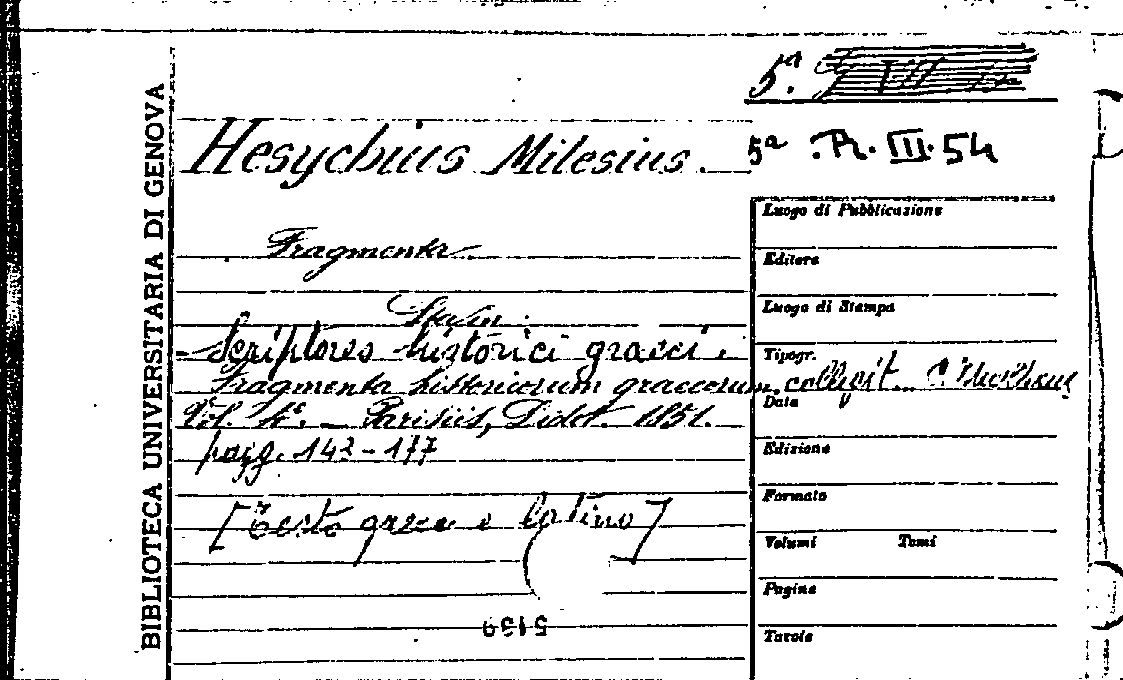 BIBLIOTECA UNIVERSITARIA DI GENOVA
5ª.
Hesychius Milesius.
5ª .R. III. 54
Fragmenta
Scriptores historici graeci.
Fragmenta historicorum graecorum, collegit
Vol. 4º. — Parisiis, Didot. 1851.
pagg. 143-177
[Testo greco e latino]
5139
Luogo di Pubblicazione
Editore
Luogo di Stampa
Tipogr.
Data
Edizione
Formato
Volumi Tomi
Pagine
Tavole